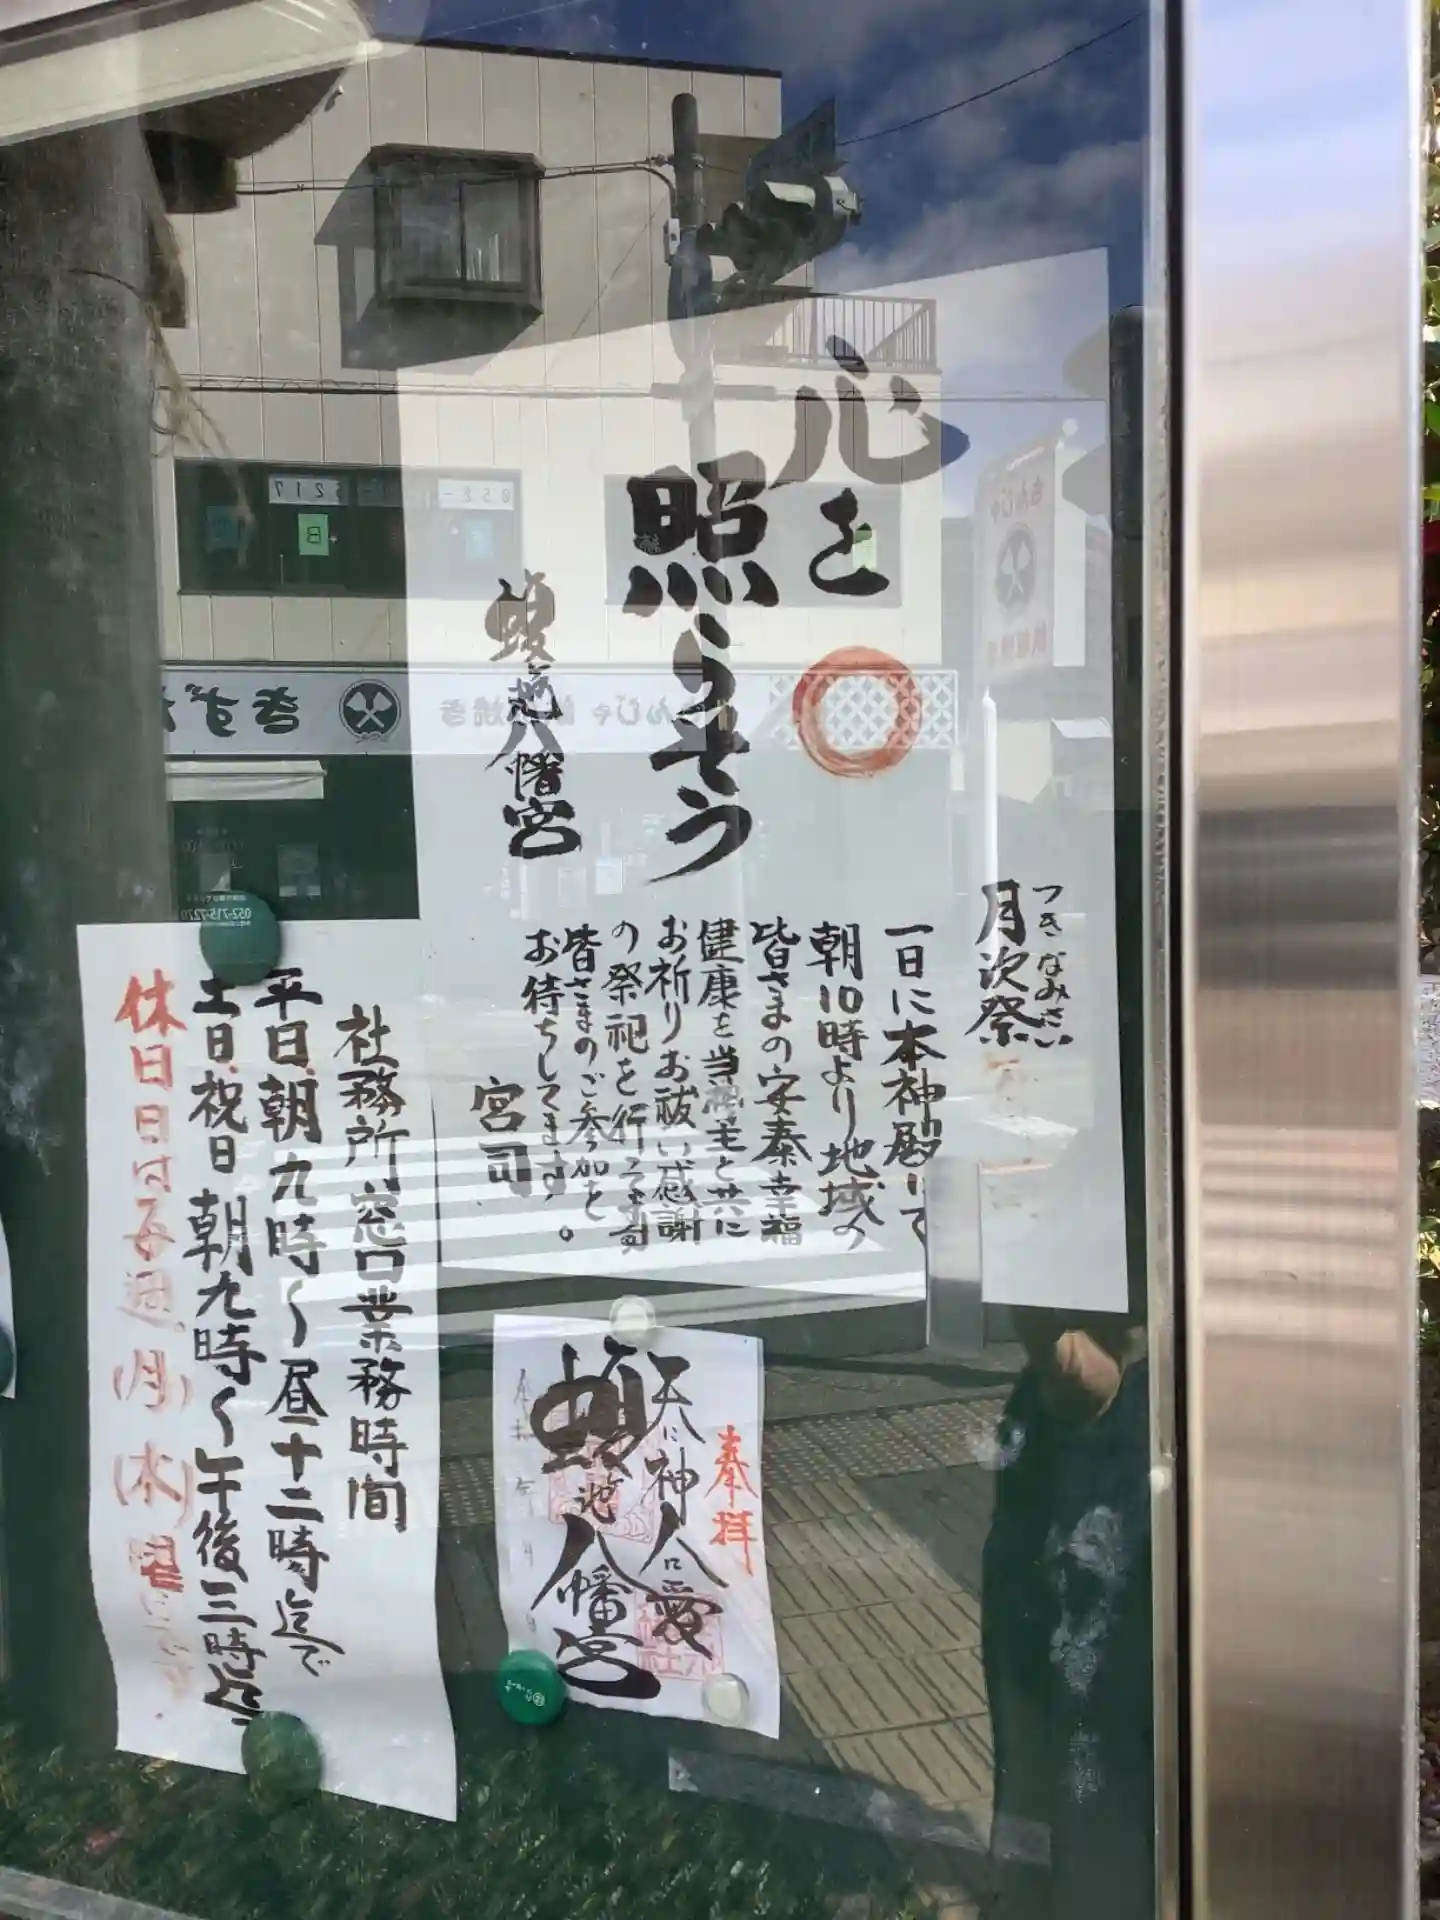 心を
照らそう
八幡宮
つきなみさい
月次祭
一日に本神殿にて
朝10時より地域の
皆さまの安泰幸福
健康を当神主と共に
お祈りお祓い感謝
の祭祀を行います
皆さまのご参加を
お待ちしてます。
宮司
社務所窓口業務時間
平日、朝九時〜昼十二時迄で
土日、祝日 朝九時〜午後三時迄
休日日は毎週(月)(木)曜日です
奉拝
天に神人に愛
池八幡宮
052-715-7270